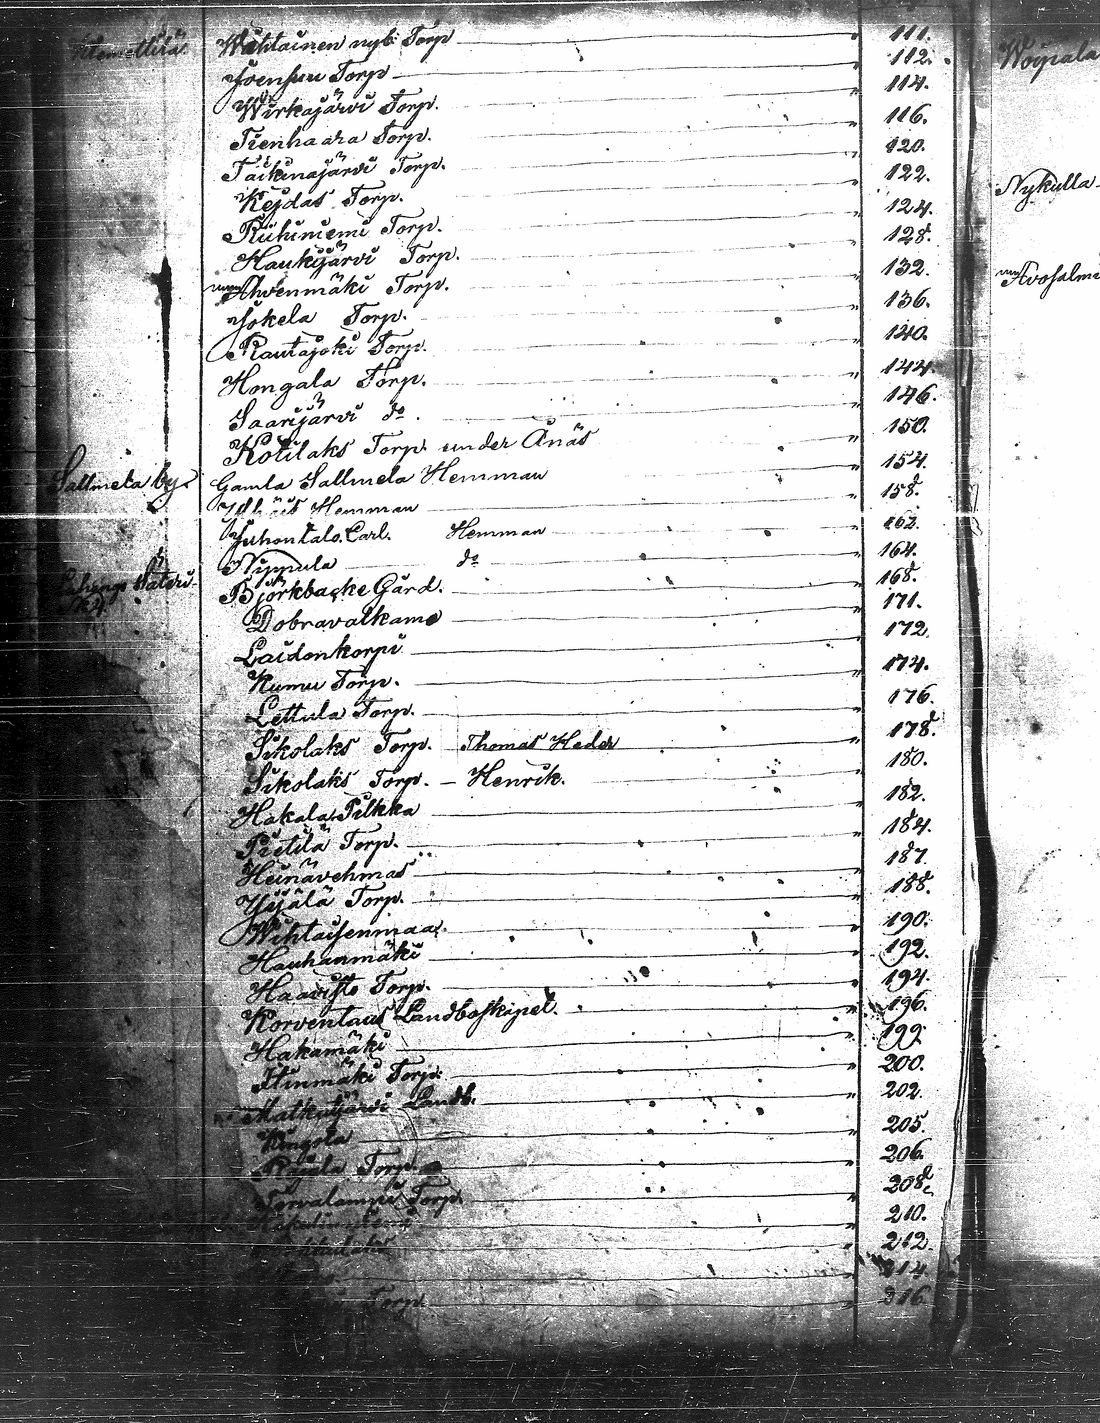 Klemettilä Wihtainen nyb. Torp 111.
Joensuu Torp 112.
Wirkajärvi Torp. 114.
Tienhaara Torp. 116.
Taikinajärvi Torp. 120.
Kejdas Torp. 122.
Riihiniemi Torp. 124.
Haukijärvi Torp. 128.
Ahvenmäki Torp. 132.
Jokela Torp. 136.
Rautajoki Torp. 140.
Hongala Torp. 144.
Saarijärvi do. 146.
Kotilaks Torp. under Ånäs 150.
Sallmela by. Gamla Sallmela Hemman 154.
Hemman 158.
Juhontalo. Carl. Hemman 162.
Nippula do 164.
Säteri Björkbacke Gård. 168.
Dobravalkamo 171.
Laidonkorpi 172.
Kumu Torp. 174.
Lettula Torp. 176.
Sikolaks Torp. Thomas Heder 178.
Sikolaks Torp. — Henrik. 180.
Hakala Pilkka 182.
Pietilä Torp. 184.
Heinävehmas 187.
Yijälä Torp. 188.
Wihtaisenmaa. 190.
Hauhanmäki 192.
Haavisto Torp. 194.
Korventaus Landboskapet. 196.
Hakamäki 199.
Itinmäki Torp. 200.
Matkusjärvi Landb. 202.
Kingola 205.
Rajala Torp. 206.
Torvalammi Torp. 208.
210.
212.
214.
Torp. 216.
Woipala
Nykulla
Avosalmi